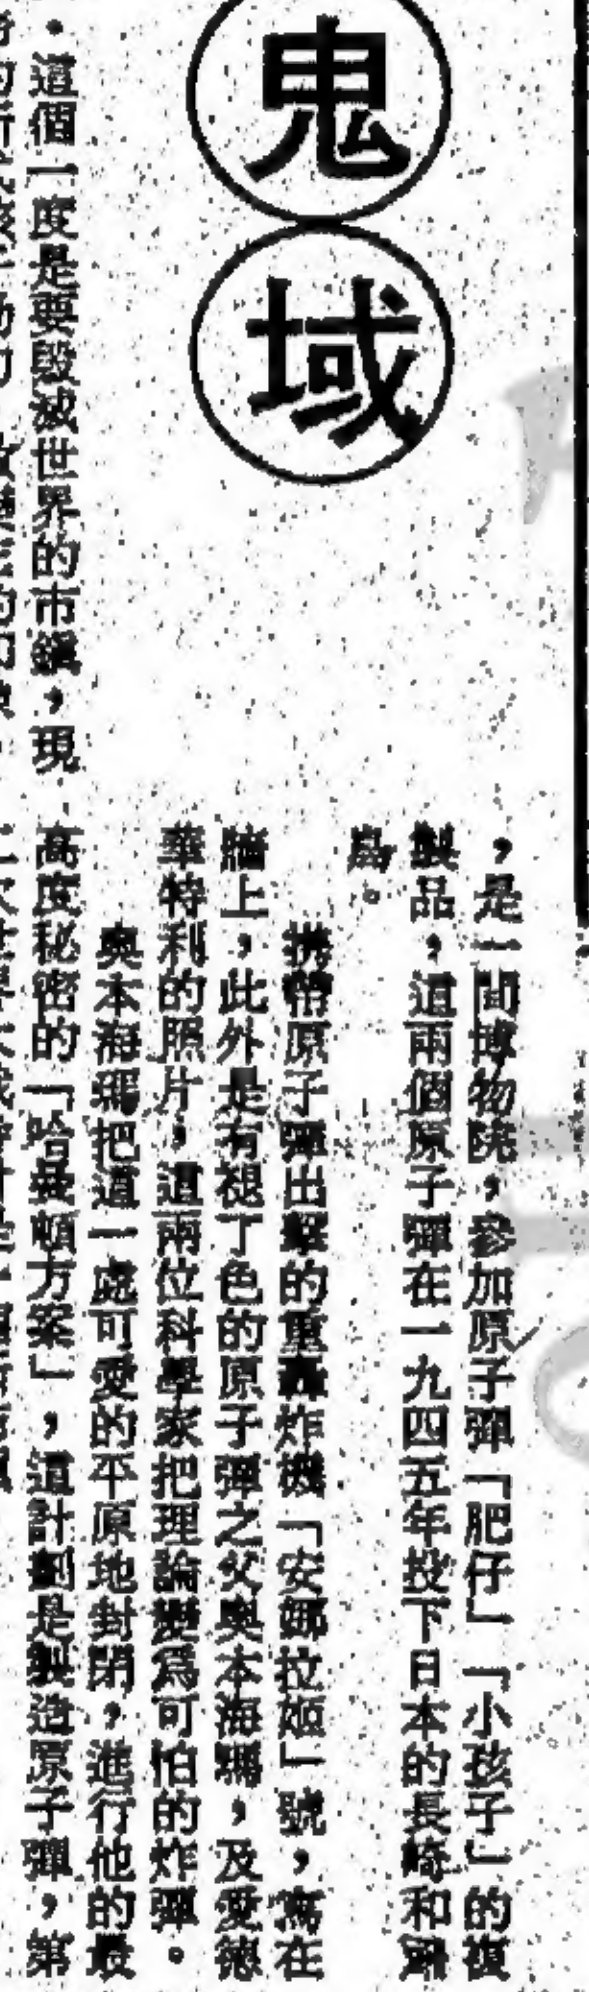 鬼域
，是一間博物院，參加原子彈「肥仔」「小孩子」的複
製品，這兩個原子彈在一九四五年投下日本的長崎和廣
島。
携帶原子彈出擊的重轟炸機「安娜拉姬」號，寫在
牆上，此外是有褪了色的原子彈之父奧本海瑪，及愛德
華特利的照片，這兩位科學家把理論變爲可怕的炸彈。
奧本海瑪把這一處可愛的平原地封閉，進行他的最
高度秘密的「哈曼頓方案」，這計劃是製造原子彈，第
。這個一度是要毀滅世界的市鎮，現